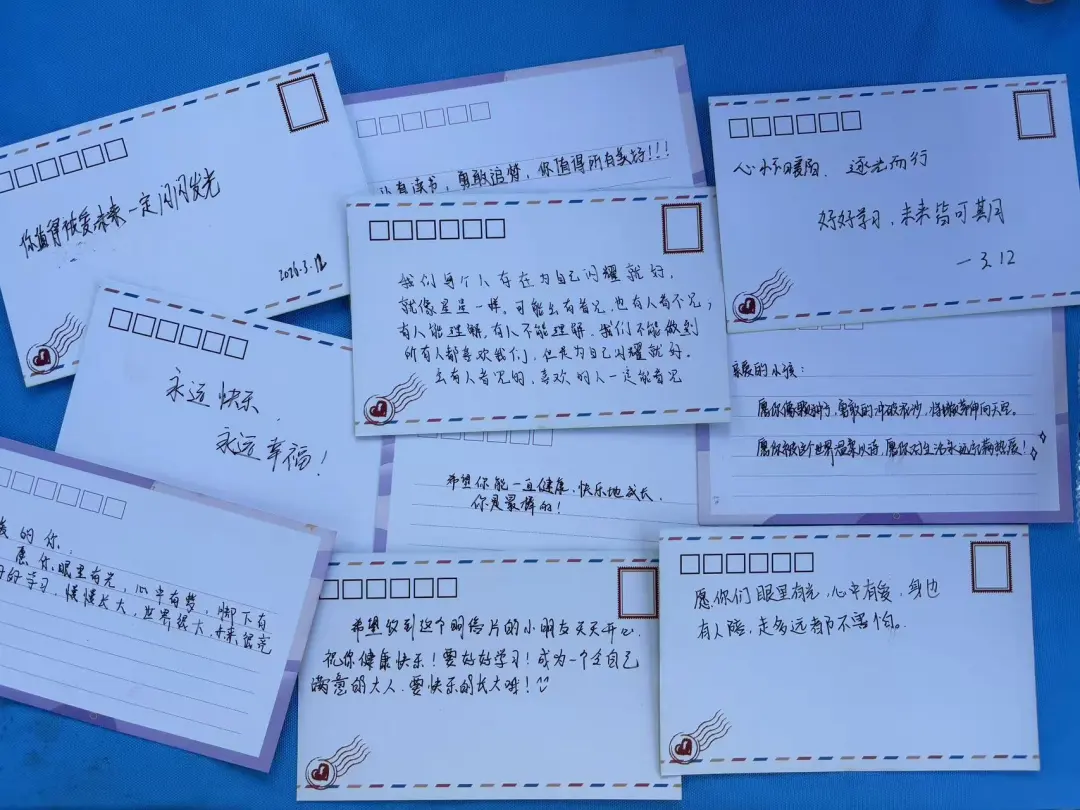 你值得被爱未来一定闪闪发光
2026.3.12
认真读书，勇敢追梦，你值得所有美好!!!
心怀暖阳、逐光而行
好好学习、未来皆可期
一 3.12
我们每个人存在为自己闪耀就好，
就像星星一样。可能会有看见，也有人看不见；
有人能理解，有人不能理解，我们不能做到
所有人都喜欢我们，但是为自己闪耀就好。
会有人看见的，喜欢的人一定能看见
永远快乐
永远幸福！
亲爱的小孩：
勇敢的冲破
愿你被这个世界温柔以待，愿你对生活永远充满热辰！
希望你能一直健康、快乐地成长，
你是最棒的！
的你：
愿你眼里有光，心中有梦，脚下有
好学习，慢慢长大，世界很大，未来很亮
希望收到这个明信片的小朋友天天开心
祝你健康快乐！要好好学习！成为一个令自己
满意的大人，要快乐的长大呀！
愿你们眼里有光，心中有爱，身边
有人陪，走多远都不害怕。